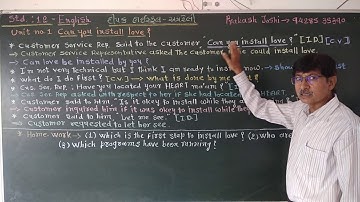 Std : 12 - English દીપક હાઈસ્કૂલ - અમરેલી Prakash Joshi - 94285 35490
Unit no.1 Can you install love?
* Customer Service Rep. Said to the customer "Can you install love?" [I.D.] [C.V]
→ Customer Service Representative asked The customer if he could install love.
→ Can love be installed by you?
* I'm not very technical but I think I am ready to install now. → show
* What do I do first? [C.V] → what is done by me first?
* Cus. Ser. Rep : Have you located your HEART ma'am?
→ Cus. Ser. Rep asked with respect to her if she had located
* Customer said to him "Is it okay to install while
→ Customer inquired him if it was okay to install while they
* Customer said to him, "Let me see." [I.D.]
→ Customer requested to let her see.
* Home work → (1) Which is the first step to install love? (2) Who are
(3) Which programs have been running?